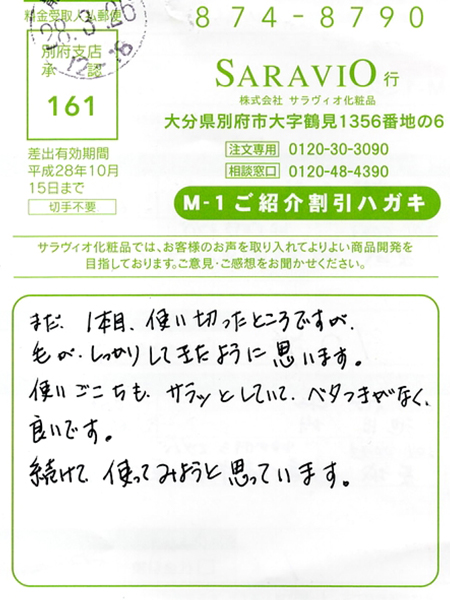 料金受取人払郵便
28.3.25
12-18
別府支店
承認
161
差出有効期間
平成28年10月
15日まで
切手不要
874-8790
SARAVIO 行
株式会社 サラヴィオ化粧品
大分県別府市大字鶴見1356番地の6
注文専用 0120-30-3090
相談窓口 0120-48-4390
M-1ご紹介割引ハガキ
サラヴィオ化粧品では、お客様のお声を取り入れてよりよい商品開発を
目指しております。ご意見・ご感想をお聞かせください。
まだ、1本目、使い切ったところですが、
毛が、しっかりしてきたように思います。
使いごこちも、サラッとしていて、ベタつきがなく、
良いです。
続けて、使ってみようと思っています。